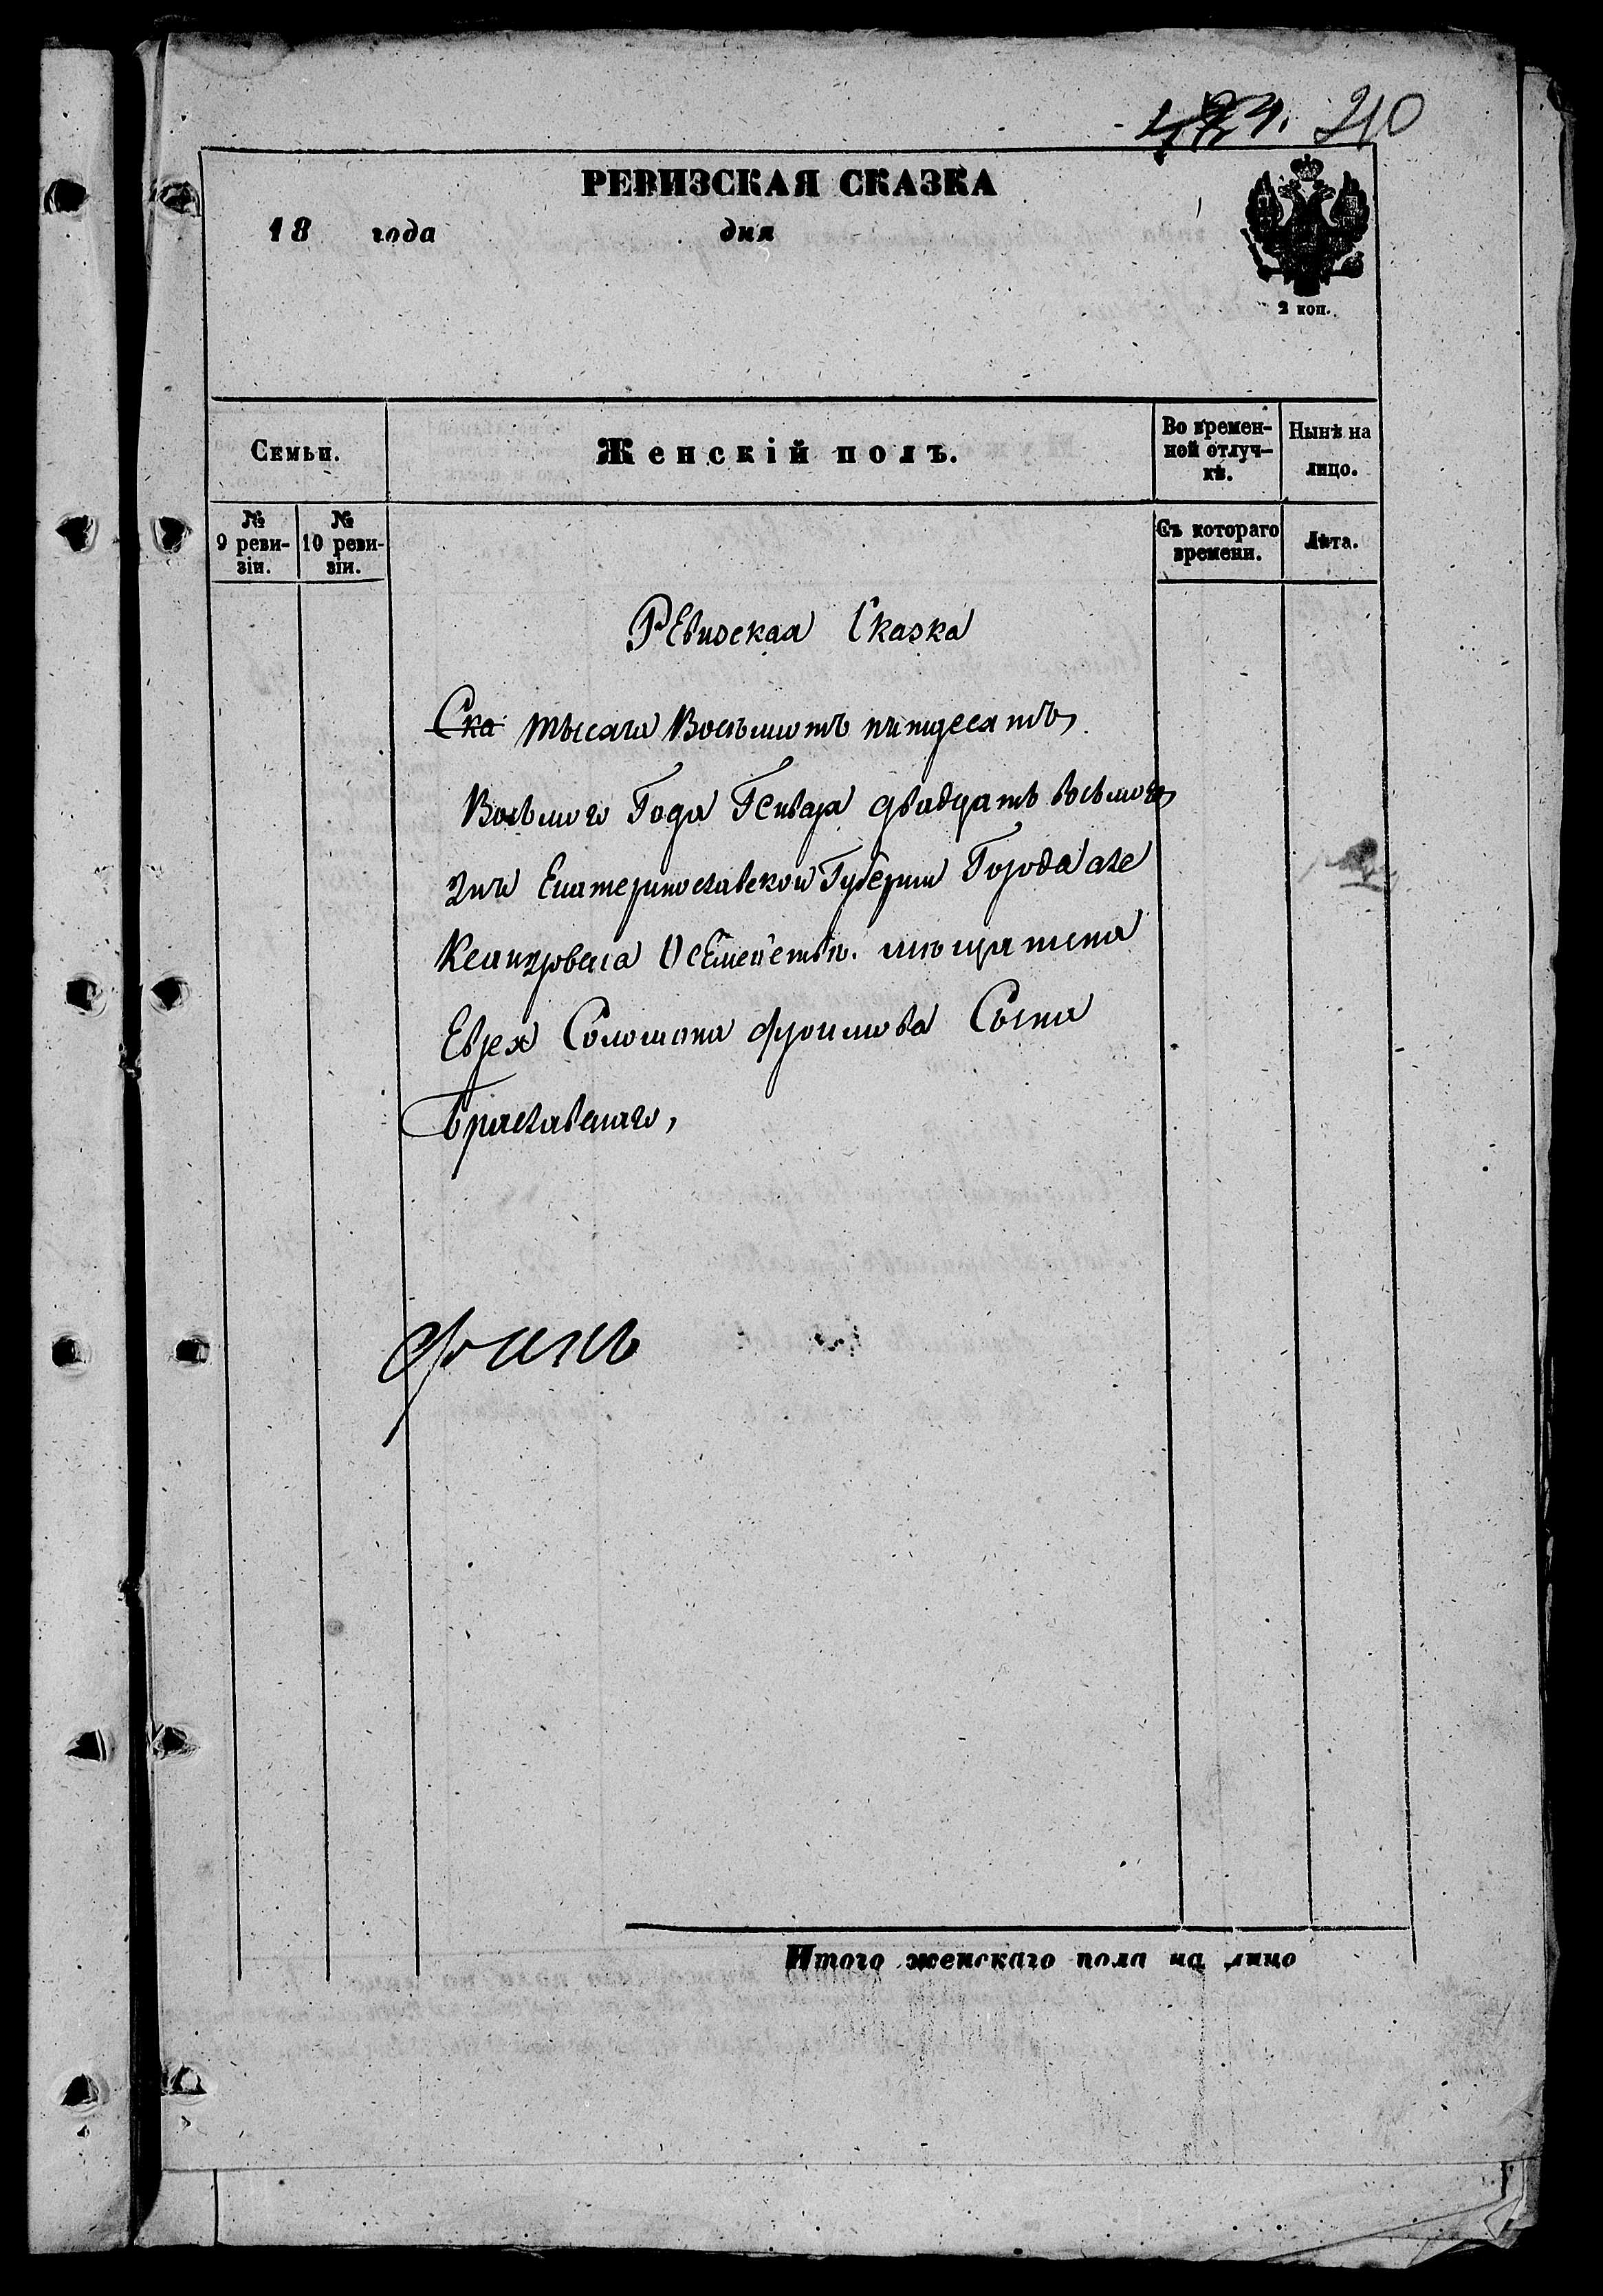 210
РЕВИЗСКАЯ СКАЗКА
18 года дня
2 коп.
Семьи. Женскій полъ. Во времен-ной отлуч-кѣ. Нынѣ на лицо.
№ 9 реви-зіи. № 10 реви-зіи. Съ котораго времени. Лѣта.
Ревизская Сказка
Ска тысяча Восъмшотъ питдесятъ
Восьмого Года Генваря двадцать восьмого
дня Екатеринославской Губерніи Города але
Ксандровска О семействѣ. мѣщанина
Еврея Соломона Фроимова Сына
Браславскаго,
Итого женскаго пола на лицо